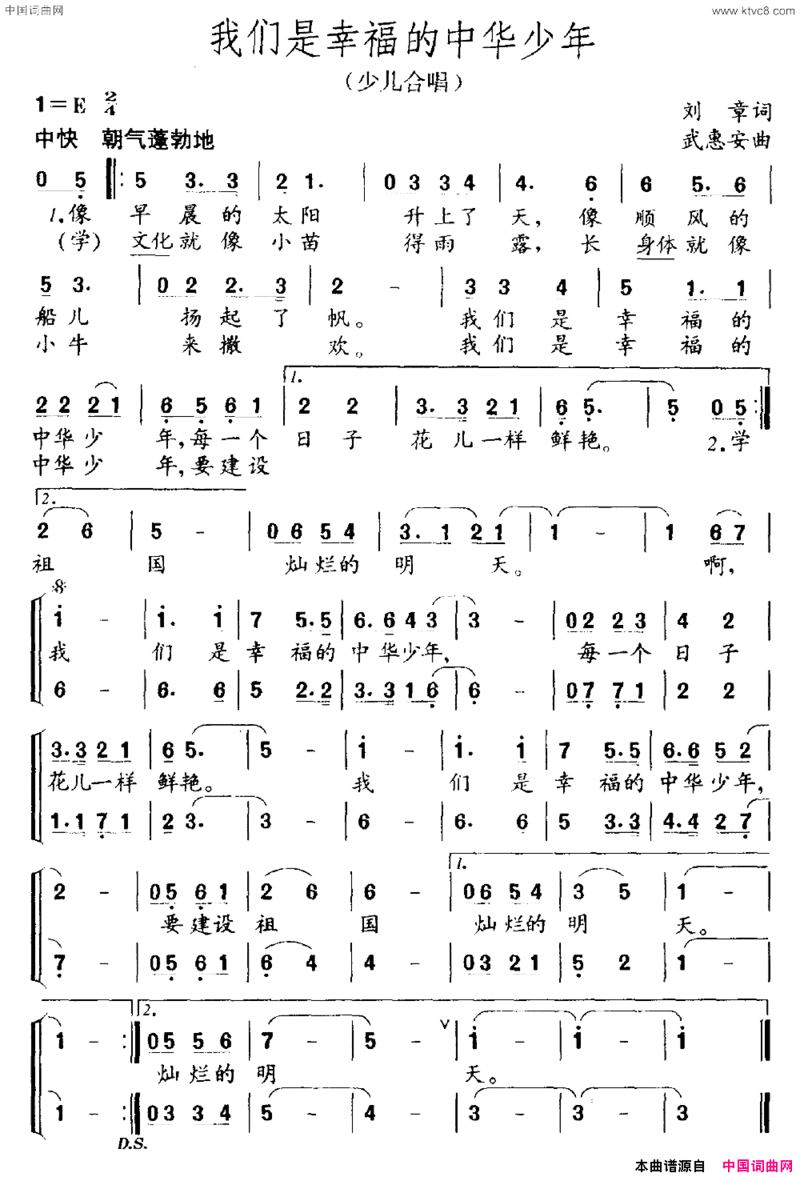 中国词曲网
www.ktvc8.com
我们是幸福的中华少年
（少儿合唱）
1=E 2/4
刘 章词
中快 朝气蓬勃地
武惠安曲
0 5 5 3. 3 2 1. 0 3 3 4 4. 6 6 5. 6
1.像 早 晨的 太阳 升上了 天，像 顺 风的
(学) 文化就像 小苗 得雨 露，长 身体就像
5 3. 0 2 2. 3 2 - 3 3 4 5 1. 1
船儿 扬起了 帆。 我们 是 幸 福的
小牛 来撒 欢。 我们 是 幸 福的
1.
2 2 2 1 6 5 6 1 2 2 3. 3 2 1 6 5. 5 0 5
中华少 年，每一个 日 子 花儿一样 鲜艳。 2.学
中华少 年，要建设
2.
2 6 5 - 0 6 5 4 3. 1 2 1 1 - 1 6 7
祖 国 灿烂的 明 天。 啊，
i - i. i 7 5. 5 6. 6 4 3 3 - 0 2 2 3 4 2
我 们 是 幸 福的 中华少年， 每一个 日 子
6 - 6. 6 5 2. 2 3. 3 1 6 6 - 0 7 7 1 2 2
3. 3 2 1 6 5. 5 - i - i. i 7 5. 5 6. 6 5 2
花儿一样 鲜艳。 我 们 是 幸 福的 中华少年，
1. 1 7 1 2 3. 3 - 6 - 6. 6 5 3. 3 4. 4 2 7
1.
2 - 0 5 6 1 2 6 6 - 0 6 5 4 3 5 1 -
要建设 祖 国 灿烂的 明 天。
7 - 0 5 6 1 6 4 4 - 0 3 2 1 5 2 1 -
2.
1 - 0 5 5 6 7 - 5 - ∨ i - i - i
灿烂的 明 天。
1 - 0 3 3 4 5 - 4 - 3 - 3 - 3
D.S.
本曲谱源自 中国词曲网